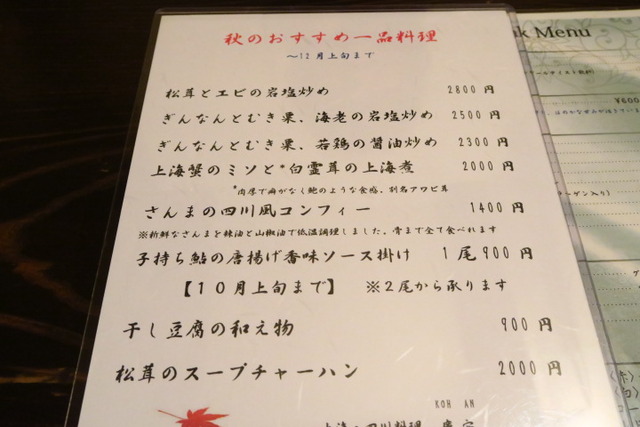 秋のおすすめ一品料理
〜12月上旬まで
松茸とエビの岩塩炒め 2800円
ぎんなんとむき栗、海老の岩塩炒め 2500円
ぎんなんとむき栗、若鶏の醤油炒め 2300円
上海蟹のミソと*白霊茸の上海煮 2000円
*肉厚で癖がなく鮑のような食感、別名アワビ茸
さんまの四川風コンフィー 1400円
※新鮮なさんまを辣油と山椒油で低温調理しました。骨まで全て食べれます
子持ち鮎の唐揚げ香味ソース掛け 1尾900円
【10月上旬まで】 ※2尾から承ります
干し豆腐の和え物 900円
松茸のスープチャーハン 2000円
KOH AN
上海・四川料理
Menu
¥600